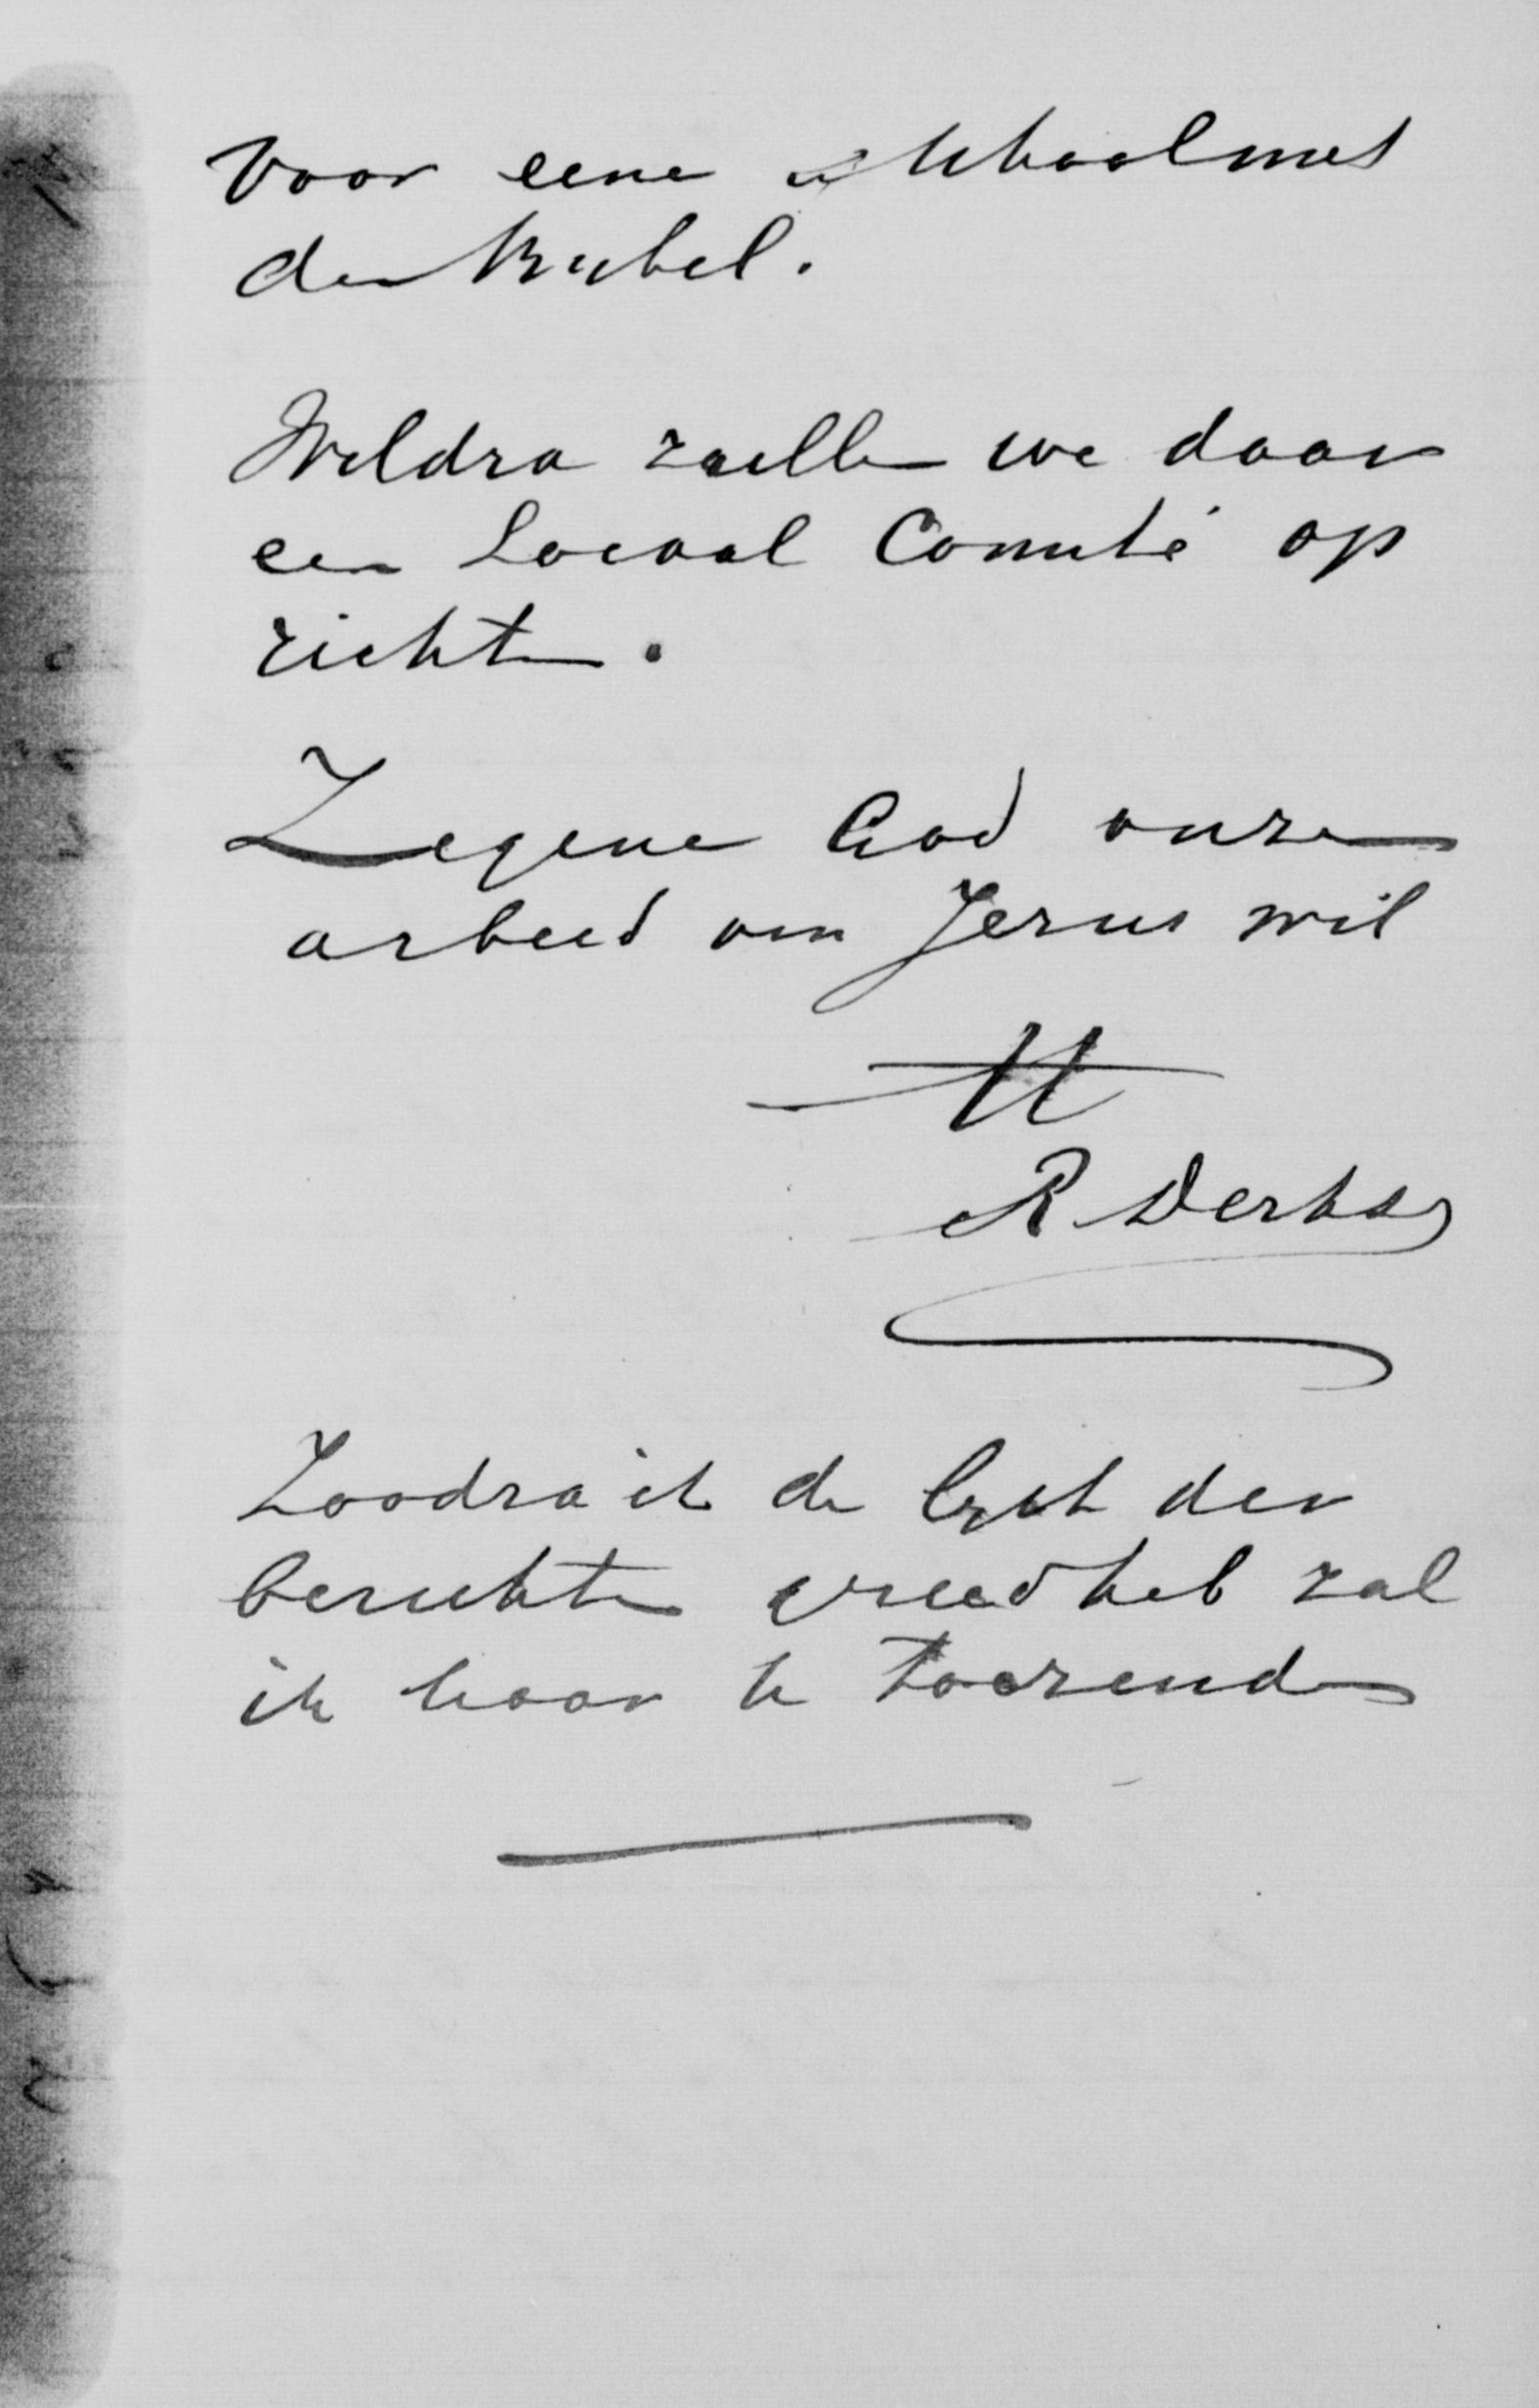 voor eene school met
den Bijbel.
Weldra zullen we daar
een Locaal Comité op
richten.
Zegene God onzen
arbeid om Jezus wil
tt
R Derks
Zoodra ik de lijst der
berichten gereed heb zal
ik haar U toezenden